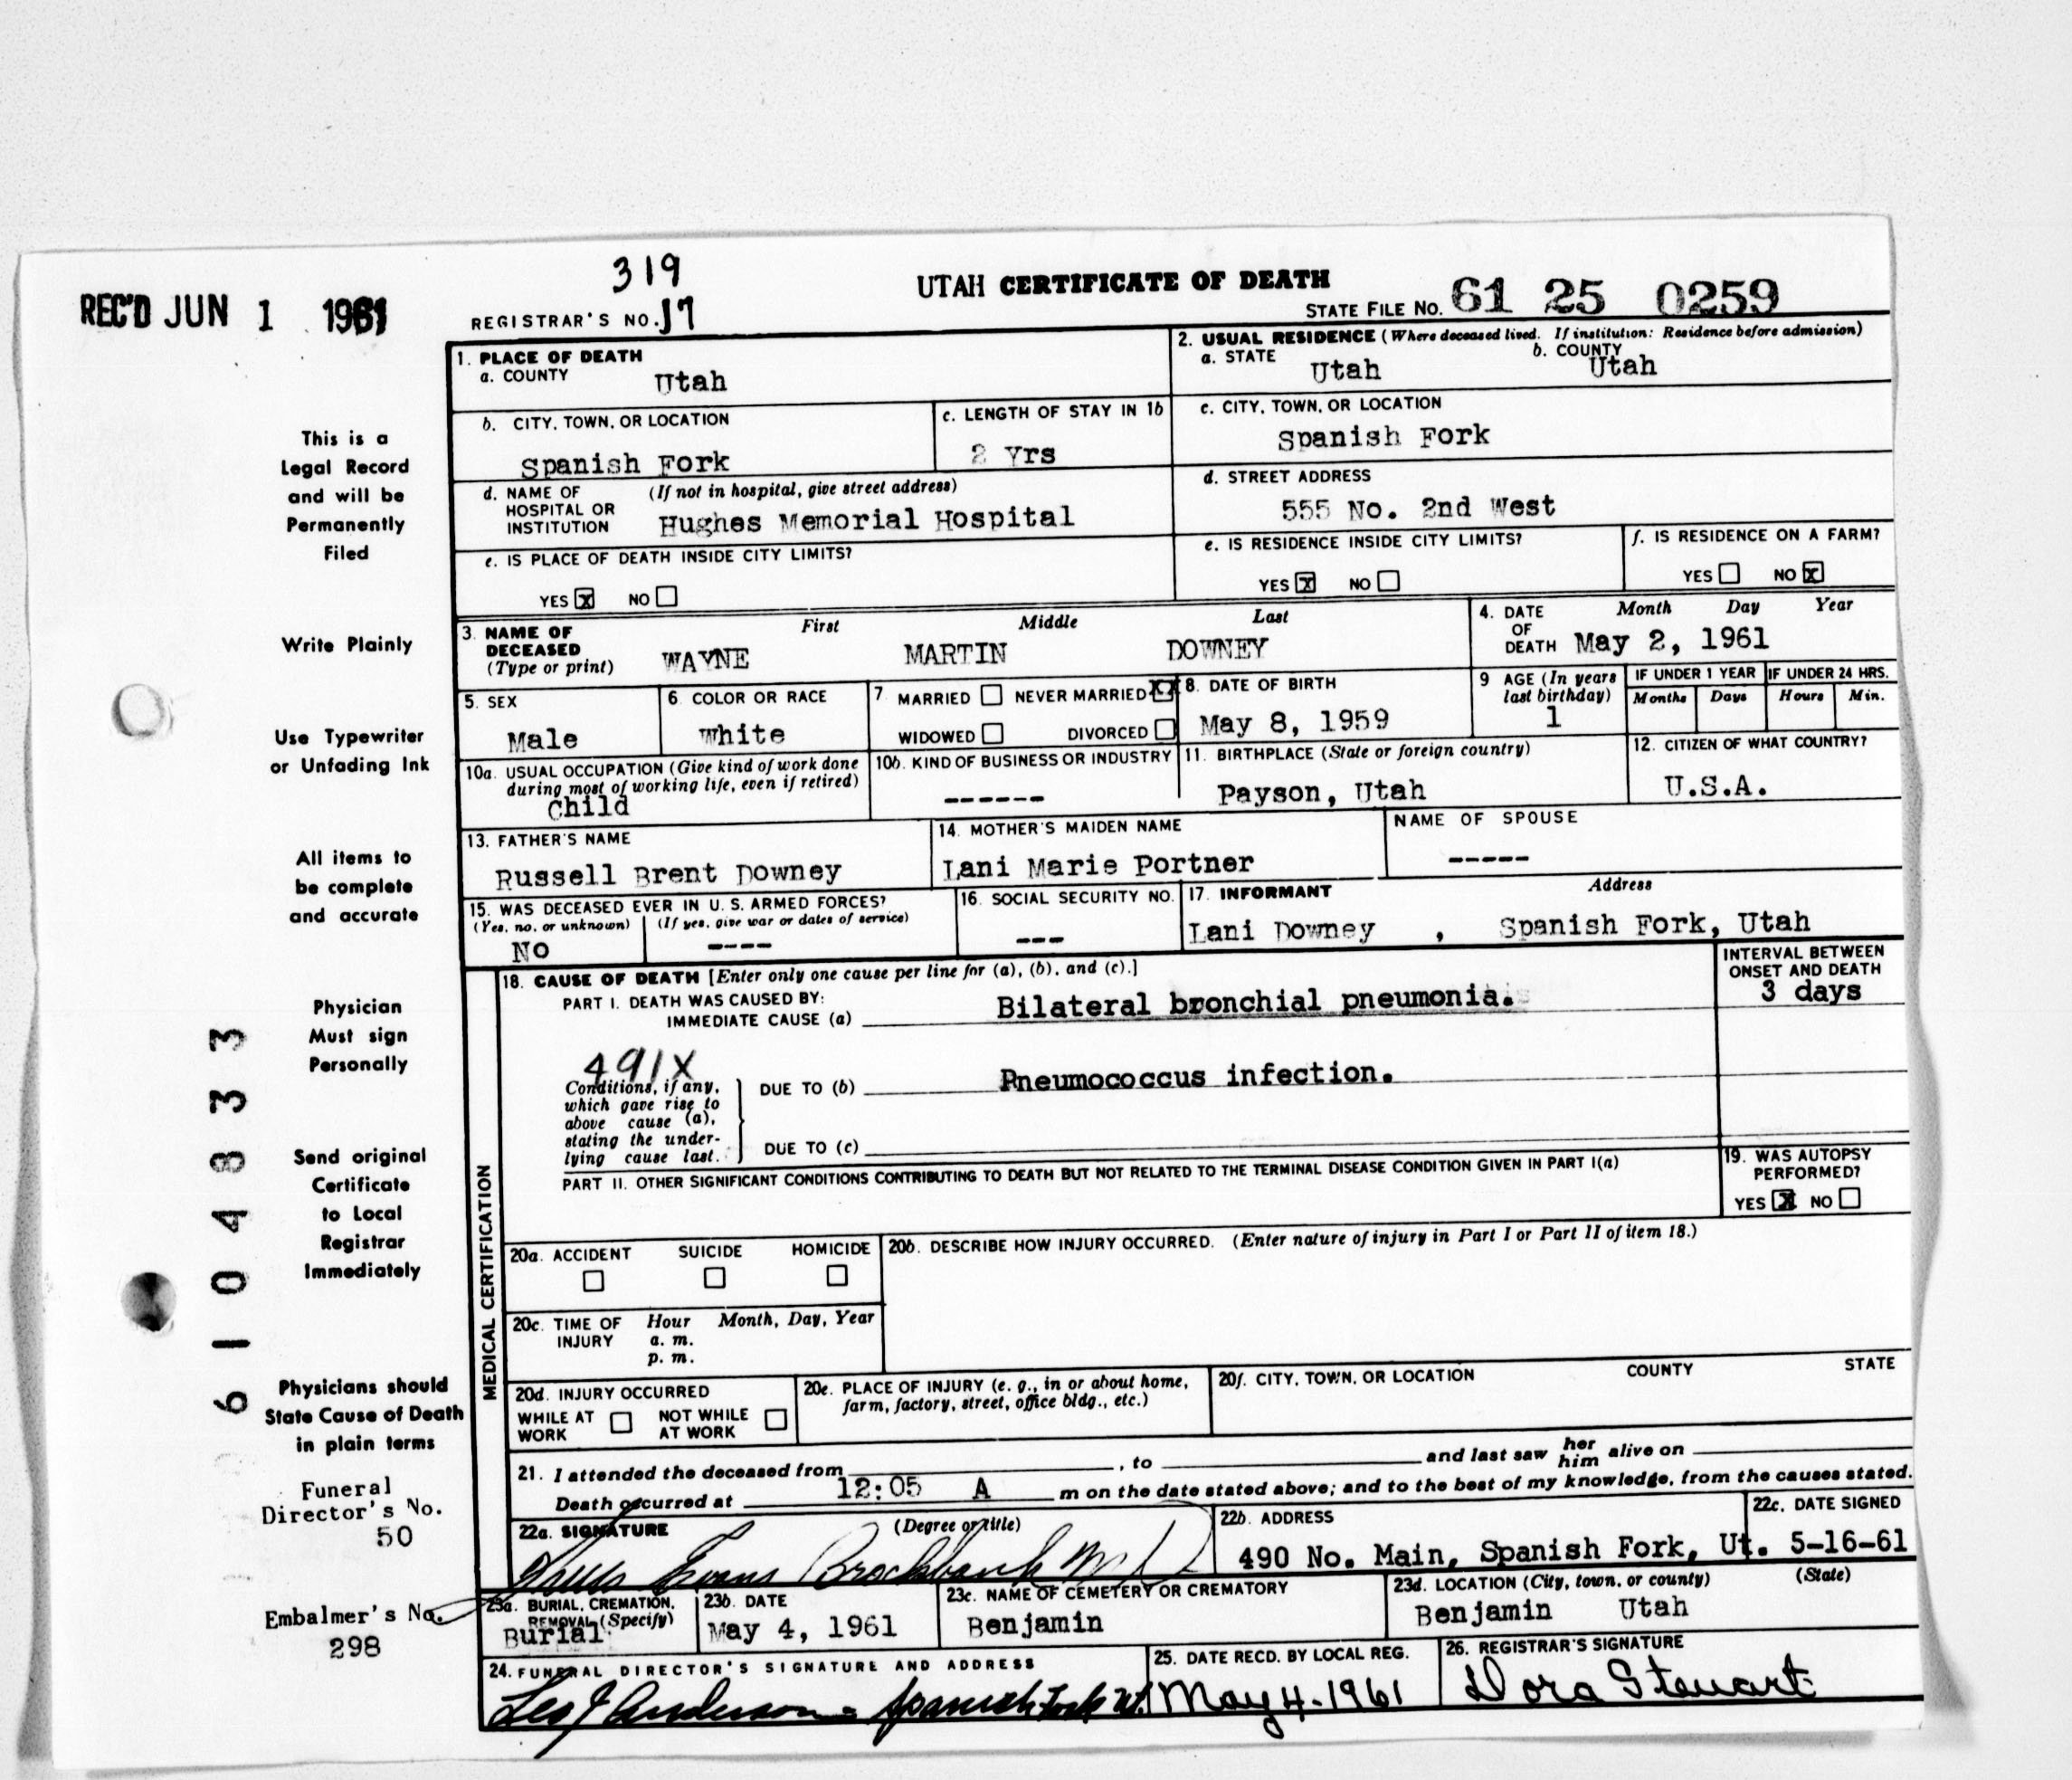 319
REC'D JUN 1 1961
REGISTRAR'S NO. 17
UTAH CERTIFICATE OF DEATH
STATE FILE NO. 61 25 0259
1. PLACE OF DEATH
a. COUNTY Utah
2. USUAL RESIDENCE (Where deceased lived. If institution: Residence before admission)
a. STATE Utah
b. COUNTY Utah
b. CITY, TOWN, OR LOCATION
Spanish Fork
c. LENGTH OF STAY IN 1b
2 Yrs
c. CITY, TOWN, OR LOCATION
Spanish Fork
d. NAME OF HOSPITAL OR INSTITUTION (If not in hospital, give street address)
Hughes Memorial Hospital
d. STREET ADDRESS
555 No. 2nd West
e. IS PLACE OF DEATH INSIDE CITY LIMITS?
YES X NO
e. IS RESIDENCE INSIDE CITY LIMITS?
YES X NO
f. IS RESIDENCE ON A FARM?
YES NO X
3. NAME OF DECEASED (Type or print)
First Middle Last
WAYNE MARTIN DOWNEY
4. DATE OF DEATH Month Day Year
May 2, 1961
5. SEX
Male
6. COLOR OR RACE
White
7. MARRIED NEVER MARRIED XX
WIDOWED DIVORCED
8. DATE OF BIRTH
May 8, 1959
9 AGE (In years last birthday)
1
IF UNDER 1 YEAR
Months Days
IF UNDER 24 HRS.
Hours Min.
10a. USUAL OCCUPATION (Give kind of work done during most of working life, even if retired)
Child
10b. KIND OF BUSINESS OR INDUSTRY
------
11. BIRTHPLACE (State or foreign country)
Payson, Utah
12. CITIZEN OF WHAT COUNTRY?
U.S.A.
13. FATHER'S NAME
Russell Brent Downey
14. MOTHER'S MAIDEN NAME
Lani Marie Portner
NAME OF SPOUSE
-----
15. WAS DECEASED EVER IN U. S. ARMED FORCES?
(Yes, no, or unknown) (If yes, give war or dates of service)
No ----
16. SOCIAL SECURITY NO.
---
17. INFORMANT Address
Lani Downey , Spanish Fork, Utah
MEDICAL CERTIFICATION
18. CAUSE OF DEATH [Enter only one cause per line for (a), (b), and (c).]
INTERVAL BETWEEN ONSET AND DEATH
3 days
PART I. DEATH WAS CAUSED BY:
IMMEDIATE CAUSE (a) Bilateral bronchial pneumonia.
491X
Conditions, if any, which gave rise to above cause (a), stating the underlying cause last.
DUE TO (b) Pneumococcus infection.
DUE TO (c)
PART II. OTHER SIGNIFICANT CONDITIONS CONTRIBUTING TO DEATH BUT NOT RELATED TO THE TERMINAL DISEASE CONDITION GIVEN IN PART I(a)
19. WAS AUTOPSY PERFORMED?
YES X NO
20a. ACCIDENT SUICIDE HOMICIDE
20b. DESCRIBE HOW INJURY OCCURRED. (Enter nature of injury in Part I or Part II of item 18.)
20c. TIME OF INJURY Hour a. m. p. m. Month, Day, Year
20d. INJURY OCCURRED
WHILE AT WORK NOT WHILE AT WORK
20e. PLACE OF INJURY (e. g., in or about home, farm, factory, street, office bldg., etc.)
20f. CITY, TOWN, OR LOCATION COUNTY STATE
21. I attended the deceased from , to and last saw her him alive on
Death occurred at 12:05 A m on the date stated above; and to the best of my knowledge, from the causes stated.
22a. SIGNATURE (Degree or title)
Evans Brockbank MD
22b. ADDRESS
490 No. Main, Spanish Fork, Ut.
22c. DATE SIGNED
5-16-61
23a. BURIAL, CREMATION, REMOVAL (Specify)
Burial
23b. DATE
May 4, 1961
23c. NAME OF CEMETERY OR CREMATORY
Benjamin
23d. LOCATION (City, town, or county) (State)
Benjamin Utah
24. FUNERAL DIRECTOR'S SIGNATURE AND ADDRESS
Leo J Anderson - Spanish Fork Ut.
25. DATE RECD. BY LOCAL REG.
May 4-1961
26. REGISTRAR'S SIGNATURE
Dora Steuart
This is a
Legal Record
and will be
Permanently
Filed
Write Plainly
Use Typewriter
or Unfading Ink
All items to
be complete
and accurate
Physician
Must sign
Personally
Send original
Certificate
to Local
Registrar
Immediately
Physicians should
State Cause of Death
in plain terms
Funeral
Director's No.
50
Embalmer's No.
298
6104833